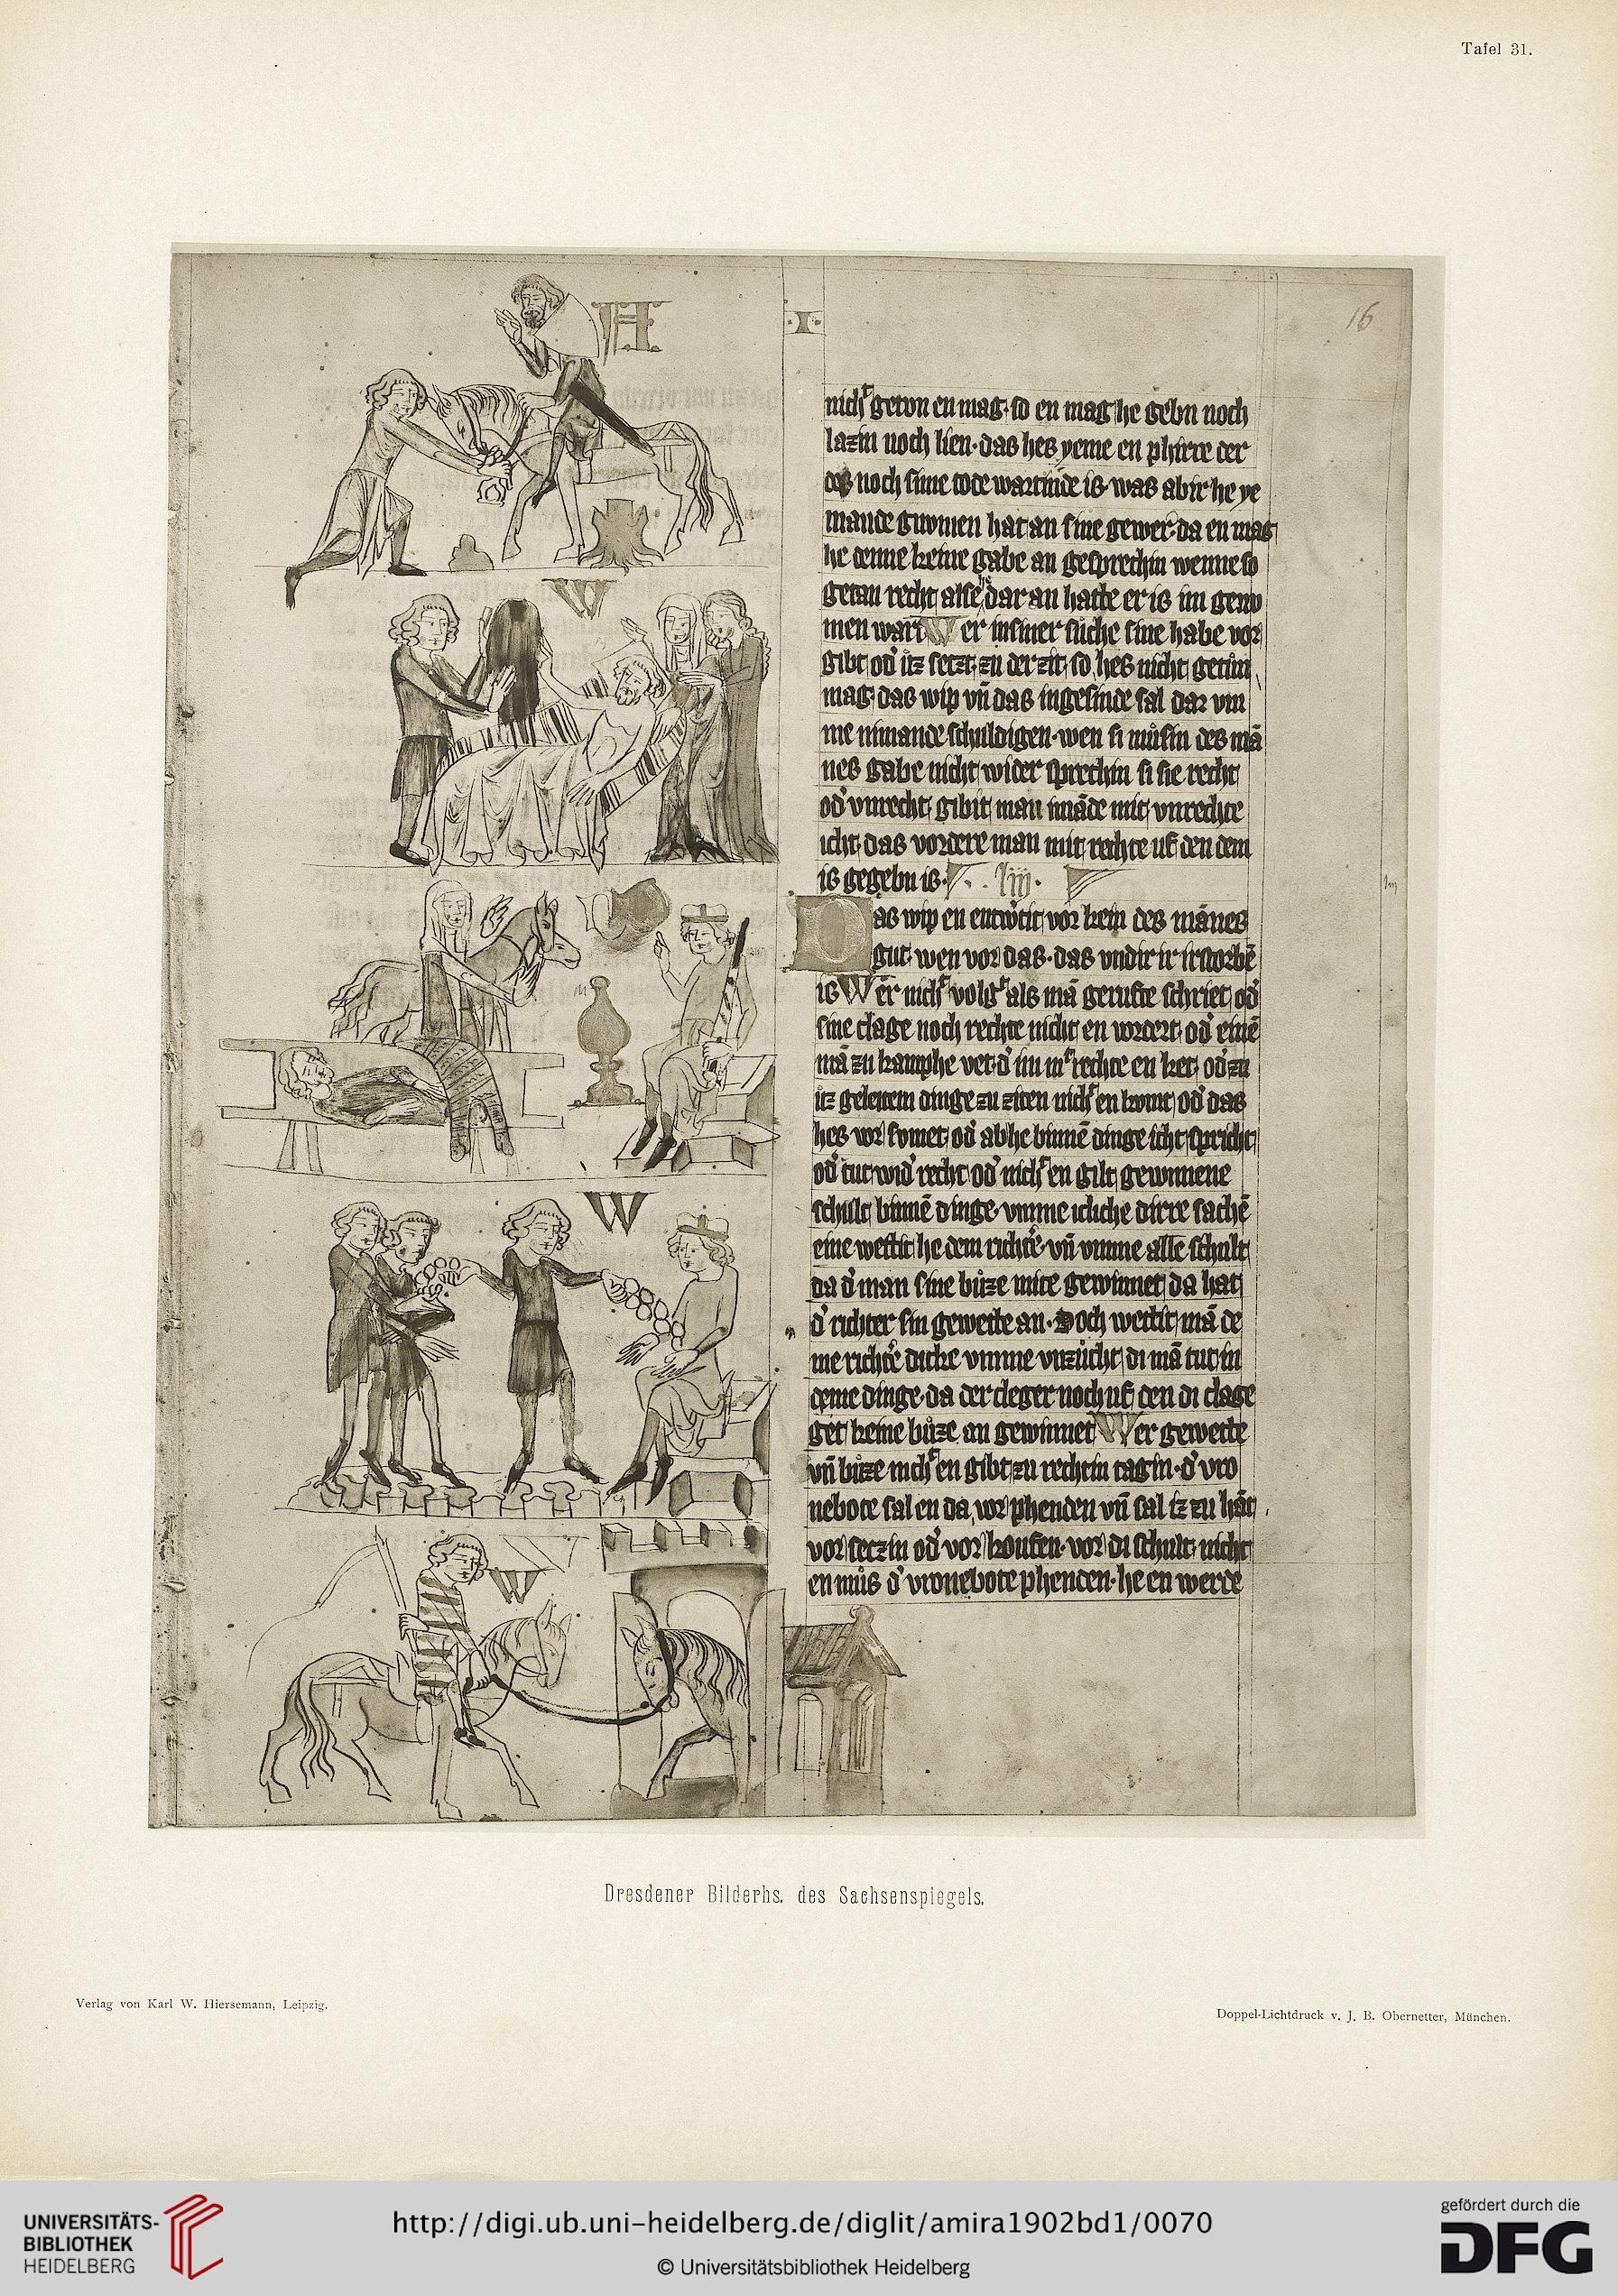 Tafel 31.
A
·I·
16
nicht getvn en mag· so en mag he gebn noch
lazin noch lien· das hes yeme en phirre der
des noch sime tode wartinde is· was abir he ye
mande gnomen hat an sine gewer· da en mag
he denne keine gabe an gesprechin wenne so
getan recht alse he dar an hatte er is im geno
men wart Wer in siner suche sine habe vor
gibt od' itz setzt zu der zit so hes nicht getun
mag· das wip vn̄ das ingesinde sal dar vm
me nimande schuldigen· wen si mûsin des mā
nes gabe nicht wider sprechin si sie recht
od' vnrecht gibit man imāde mit vnrechte
icht das vordere man mit rechte uf den dem
is gegebn is· liij·
Das wip en entw'tit vor kein des mānes
gut· wen vor das· das vndir ir irstorbē
is Wer nicht volgt als mā gerufte schriet od'
sine clage noch rechte nicht en vordert od' einē
mā zu kamphe vet· d' im mit rechte en ket· od' zu
itz geleitem dinge zu ziten nicht en kvmt od' das
hes vor svmet od' ab he binnē dinge icht spricht
od' tut wid' recht od' nicht en gilt gewunnene
schult binnē dinge· vmme icliche dirre sachē
eine wettit he dem richt'e· vn̄ vmme alle schult
da d' man sine bûze mite gewinnet da hat
d' richter sin gewette an· Doch wettit mā de
me richt'e dicke vmme vnzûcht di mā tut in
deme dinge· da der cleger noch uf den di clage
get keine bûze an gewinnet Wer gewette
vn̄ bûze nicht en gibt zu rechtin tagin· d' vro
nebote sal en da vor phenden vn̄ sal iz zu hāt
vor setzin od' vor koufen· vor di schult· nicht
en mûs d' vronebote phenden· he en werde
W
D
W
W
Dresdener Bilderhs. des Sachsenspiegels.
Verlag von Karl W. Hiersemann, Leipzig.
Doppel-Lichtdruck v. J. B. Obernetter, München.
UNIVERSITÄTS-
BIBLIOTHEK
HEIDELBERG
http://digi.ub.uni-heidelberg.de/diglit/amira1902bd1/0070
© Universitätsbibliothek Heidelberg
gefördert durch die
DFG